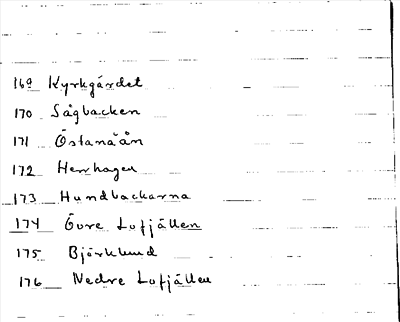 169 Kyrkgärdet
170 Sågbacken
171 Östanåån
172 Herrhagen
173 Hundbackarna
174 Övre Lofjällen
175 Björklund
176 Nedre Lofjällen